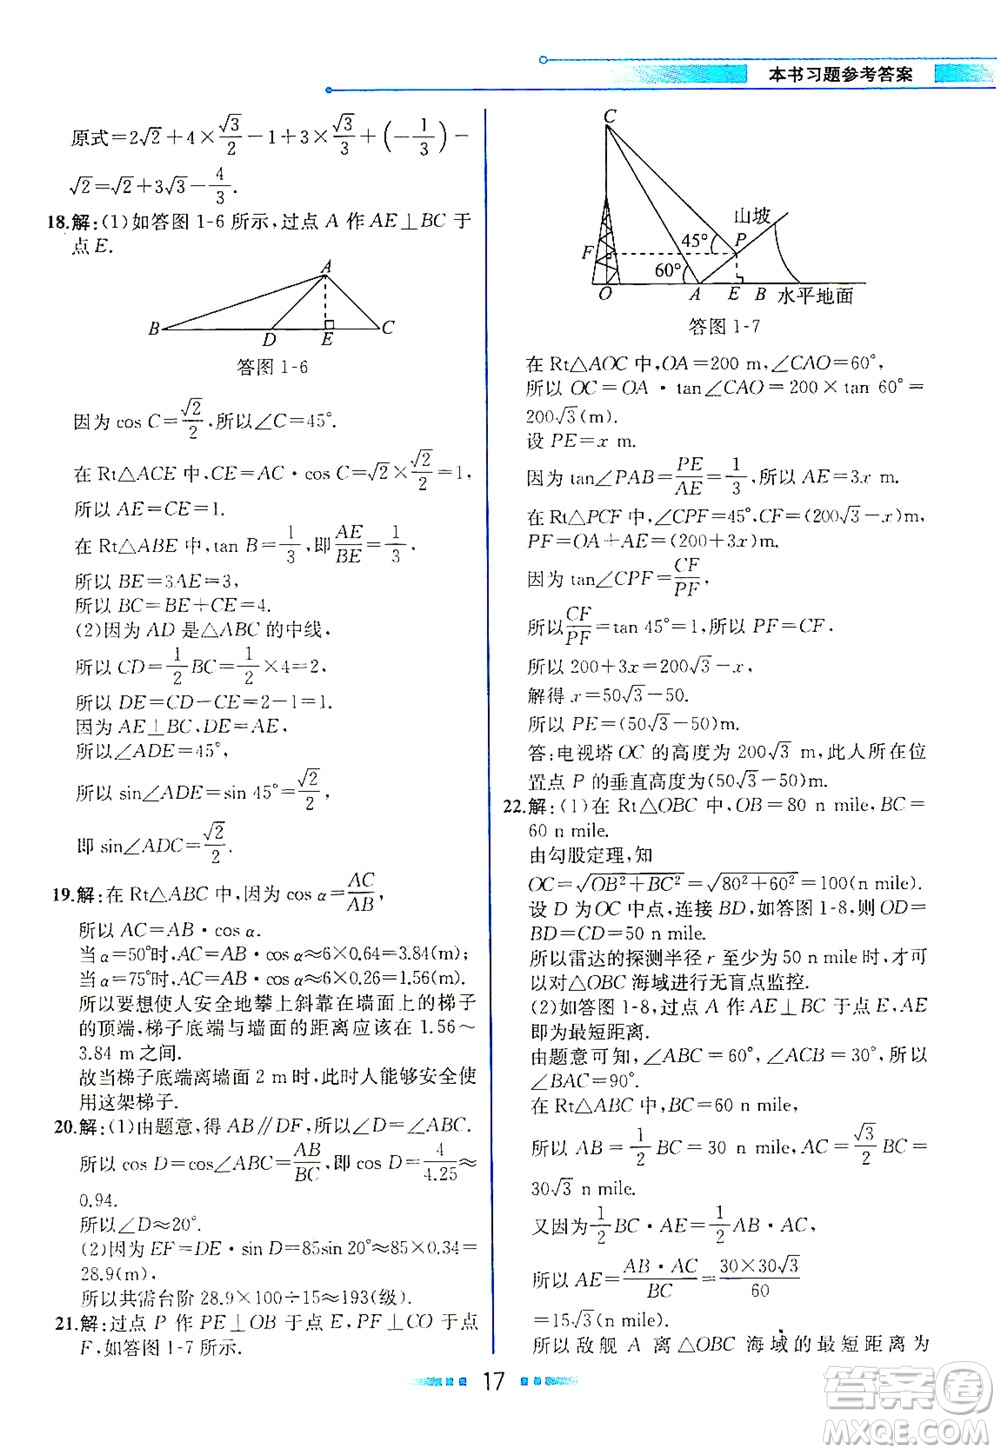 本书习题参考答案
原式=2√2+4×√3/2-1+3×√3/3+(-1/3)-
√2=√2+3√3-4/3.
18.解:(1)如答图1-6所示,过点A作AE⊥BC于
点E.
A
B D E C
答图1-6
因为cos C=√2/2,所以∠C=45°.
在Rt△ACE中,CE=AC·cos C=√2×√2/2=1,
所以AE=CE=1.
在Rt△ABE中,tan B=1/3,即AE/BE=1/3,
所以BE=3AE=3,
所以BC=BE+CE=4.
(2)因为AD是△ABC的中线,
所以CD=1/2BC=1/2×4=2,
所以DE=CD-CE=2-1=1.
因为AE⊥BC,DE=AE,
所以∠ADE=45°,
所以sin∠ADE=sin 45°=√2/2,
即sin∠ADC=√2/2.
19.解:在Rt△ABC中,因为cos α=AC/AB,
所以AC=AB·cos α.
当α=50°时,AC=AB·cos α≈6×0.64=3.84(m);
当α=75°时,AC=AB·cos α≈6×0.26=1.56(m).
所以要想使人安全地攀上斜靠在墙面上的梯子
的顶端,梯子底端与墙面的距离应该在1.56~
3.84 m之间.
故当梯子底端离墙面2 m时,此时人能够安全使
用这架梯子.
20.解:(1)由题意,得AB∥DF,所以∠D=∠ABC.
所以cos D=cos∠ABC=AB/BC,即cos D=4/4.25≈
0.94.
所以∠D≈20°.
(2)因为EF=DE·sin D=85sin 20°≈85×0.34=
28.9(m),
所以共需台阶28.9×100÷15≈193(级).
21.解:过点P作PE⊥OB于点E,PF⊥CO于点
F,如答图1-7所示.
C
山坡
45° P
F
60°
O A E B 水平地面
答图1-7
在Rt△AOC中,OA=200 m,∠CAO=60°,
所以OC=OA·tan∠CAO=200×tan 60°=
200√3(m).
设PE=x m.
因为tan∠PAB=PE/AE=1/3,所以AE=3x m.
在Rt△PCF中,∠CPF=45°,CF=(200√3-x)m,
PF=OA+AE=(200+3x)m.
因为tan∠CPF=CF/PF,
所以CF/PF=tan 45°=1,所以PF=CF,
所以200+3x=200√3-x,
解得x=50√3-50.
所以PE=(50√3-50)m.
答:电视塔OC的高度为200√3 m,此人所在位
置点P的垂直高度为(50√3-50)m.
22.解:(1)在Rt△OBC中,OB=80 n mile,BC=
60 n mile.
由勾股定理,知
OC=√(OB²+BC²)=√(80²+60²)=100(n mile).
设D为OC中点,连接BD,如答图1-8,则OD=
BD=CD=50 n mile.
所以雷达的探测半径r至少为50 n mile时,才可
以对△OBC海域进行无盲点监控.
(2)如答图1-8,过点A作AE⊥BC于点E,AE
即为最短距离.
由题意可知,∠ABC=60°,∠ACB=30°,所以
∠BAC=90°.
在Rt△ABC中,BC=60 n mile,
所以AB=1/2BC=30 n mile,AC=√3/2BC=
30√3 n mile.
又因为1/2BC·AE=1/2AB·AC,
所以AE=AB·AC/BC=30×30√3/60
=15√3(n mile).
所以敌舰A离△OBC海域的最短距离为
17
答案圈
MXQE.COM